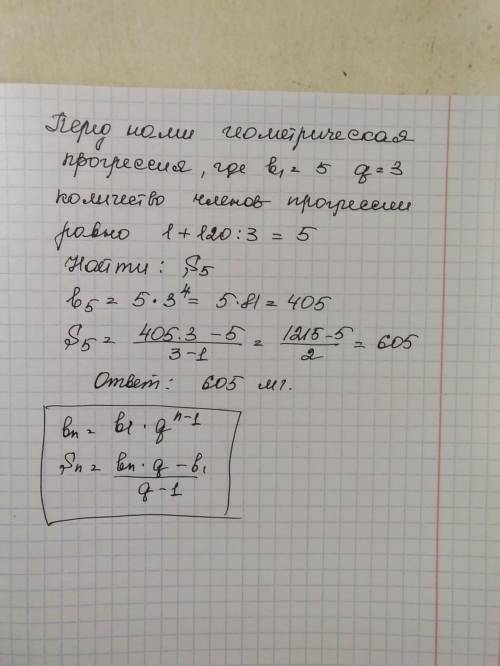 Перед нами геометрическая
прогрессия, где b₁ = 5 q = 3
количество членов прогрессии
равно 1 + 120 : 3 = 5
Найти: S₅
b₅ = 5 · 3⁴ = 5 · 81 = 405
S₅ = (405·3 − 5)/(3−1) = (1215−5)/2 = 605
Ответ: 605 мг.
bₙ = b₁ · qⁿ⁻¹
Sₙ = (bₙ · q − b₁)/(q − 1)